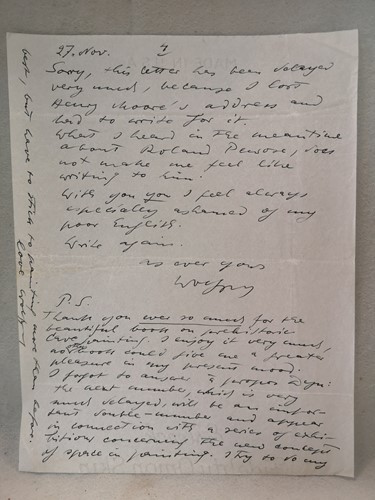 27. Nov.
Sorry, this letter has been delayed
very much, because I lost
Henry Moore's address and
had to write for it.
What I heard in the meantime
about Roland Penrose, does
not make me feel like
writing to him.
With you you I feel always
especially ashamed of my
poor English.
Write again.
as ever yours
Wolfgang
P.S.
Thank you ever so much for the
beautiful book on prehistoric
Cave painting. I enjoy it very much,
no book could give me a greater
pleasure in my present mood.
I forgot to answer à propos Dyn:
the next number, which is very
much delayed, will be an impor-
tant double-number and appear
in connection with a series of exhi-
bitions concerning the new concept
of space in painting. I try to do my
best, but have to stick to painting more than before.
love Wolfgang